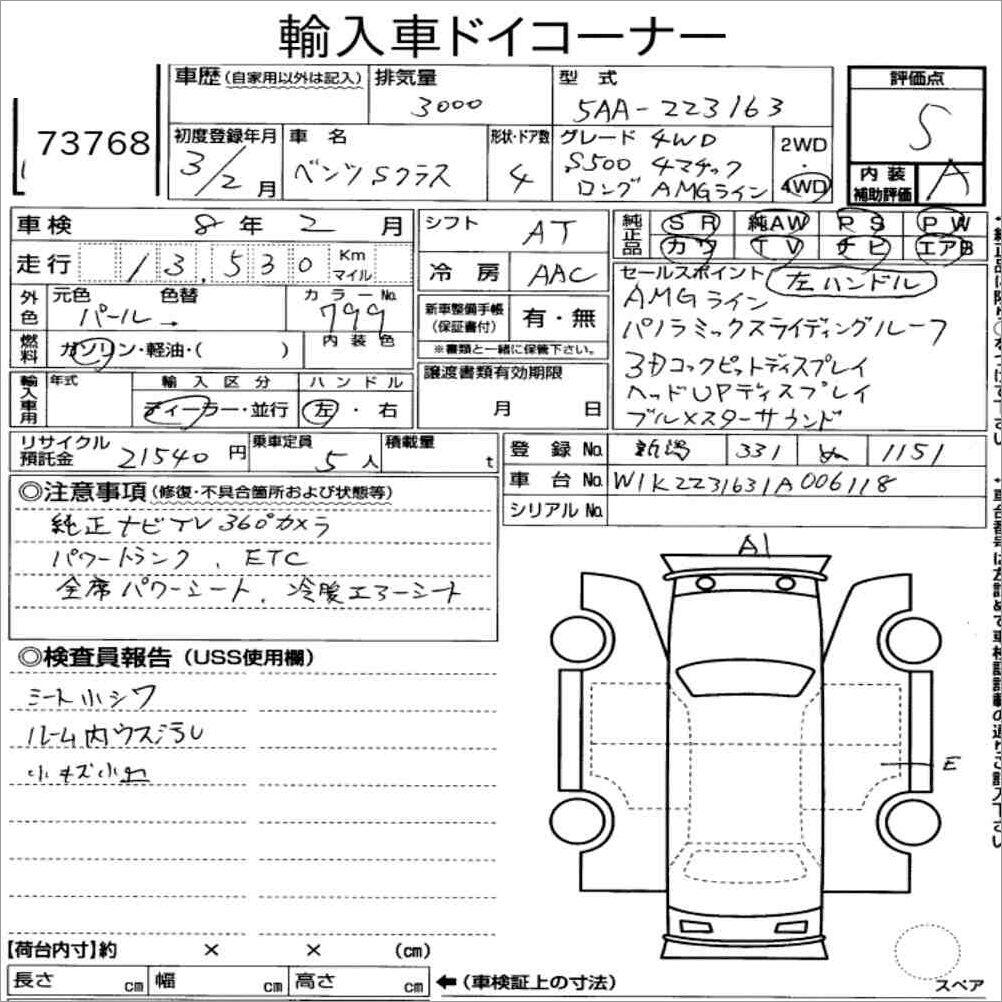 輸入車ドイコーナー
73768
車歴(自家用以外は記入)
排気量
3000
型式
5AA-223163
評価点
S
初度登録年月
3/2月
車名
ベンツSクラス
形状・ドア数
4
グレード 4WD
S500 4マチック
ロング AMGライン
2WD
・
4WD
内装
補助評価
A
車検 8年2月
シフト AT
純正品
SR 純AW PS PW
カワ TV ナビ エアB
走行 13,530 Km マイル
冷房 AAC
セールスポイント 左ハンドル
AMGライン
パノラミックスライディングルーフ
3Dコックピットディスプレイ
ヘッドUPディスプレイ
ブルメスターサウンド
外色 元色 色替 カラーNo.
パール→ 799
新車整備手帳
(保証書付)
有・無
※書類と一緒に保管下さい。
燃料 ガソリン・軽油・( ) 内装色
譲渡書類有効期限
月 日
輸入車用 年式 輸入区分 ハンドル
ディーラー・並行 左・右
リサイクル
預託金 21540円
乗車定員 5人
積載量 t
登録No. 新潟 331 ぬ 1151
車台No. W1K2231631A006118
シリアルNo.
◎注意事項(修復・不具合箇所および状態等)
純正ナビTV 360°カメラ
パワートランク、ETC
全席パワーシート、冷暖エアーシート
◎検査員報告(USS使用欄)
シート小シワ
ルーム内ウス汚レ
小キズ小凹
A1
E
【荷台内寸】約 × × (cm)
長さ cm 幅 cm 高さ cm
←(車検証上の寸法)
スペア